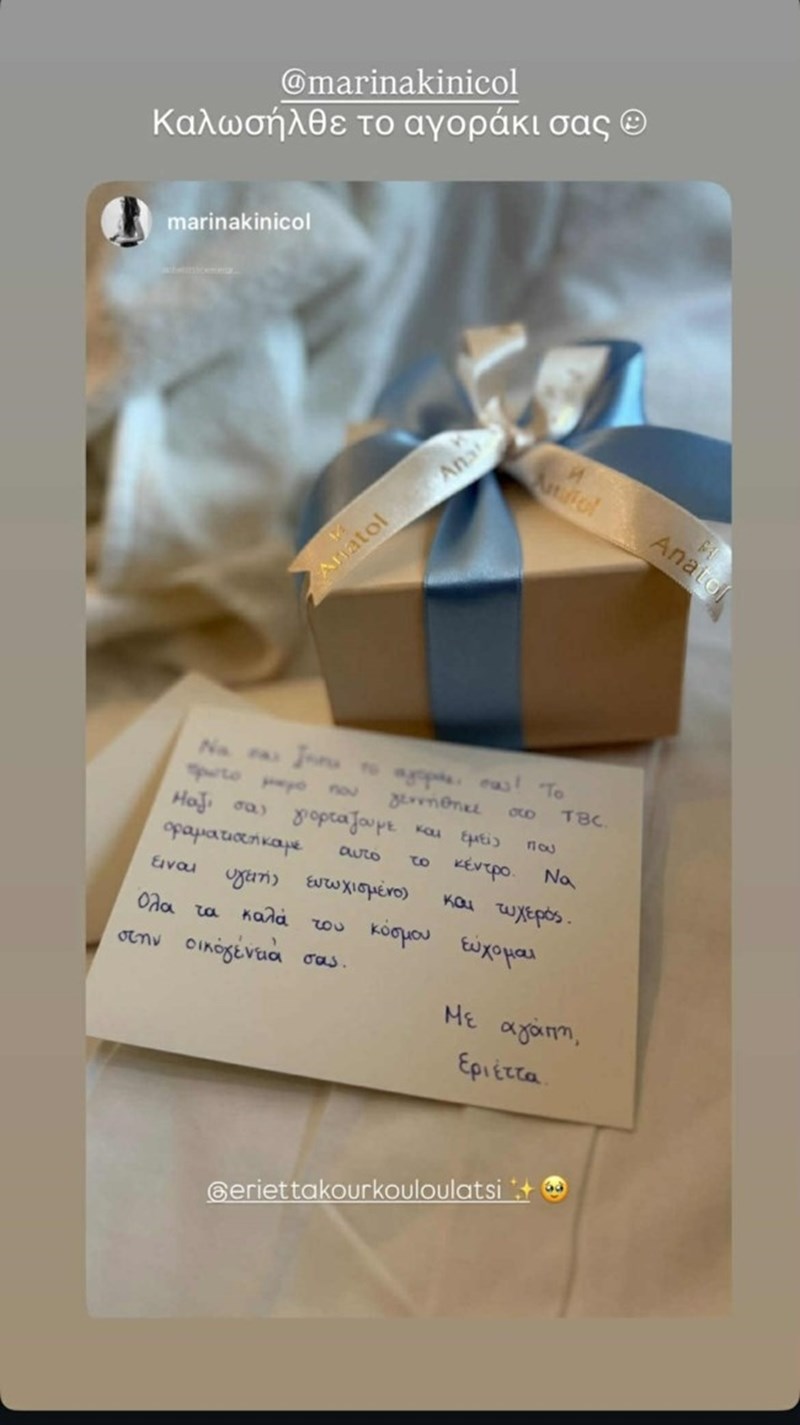 @marinakinicol
Καλωσήλθε το αγοράκι σας
marinakinicol
Anatol
Anatol
Anatol
Να σας ζήσει το αγοράκι σας! Το
πρωτο μωρό που γεννήθηκε στο TBC.
Μαζι σας γιορταζουμε και εμείς που
οραματιστήκαμε αυτό το κέντρο. Να
ειναι υγιής ευτυχισμένος και τυχερός.
Όλα τα καλά του κόσμου εύχομαι
στην οικογένειά σας.
Με αγάπη,
Εριέττα.
@eriettakourkouloulatsi